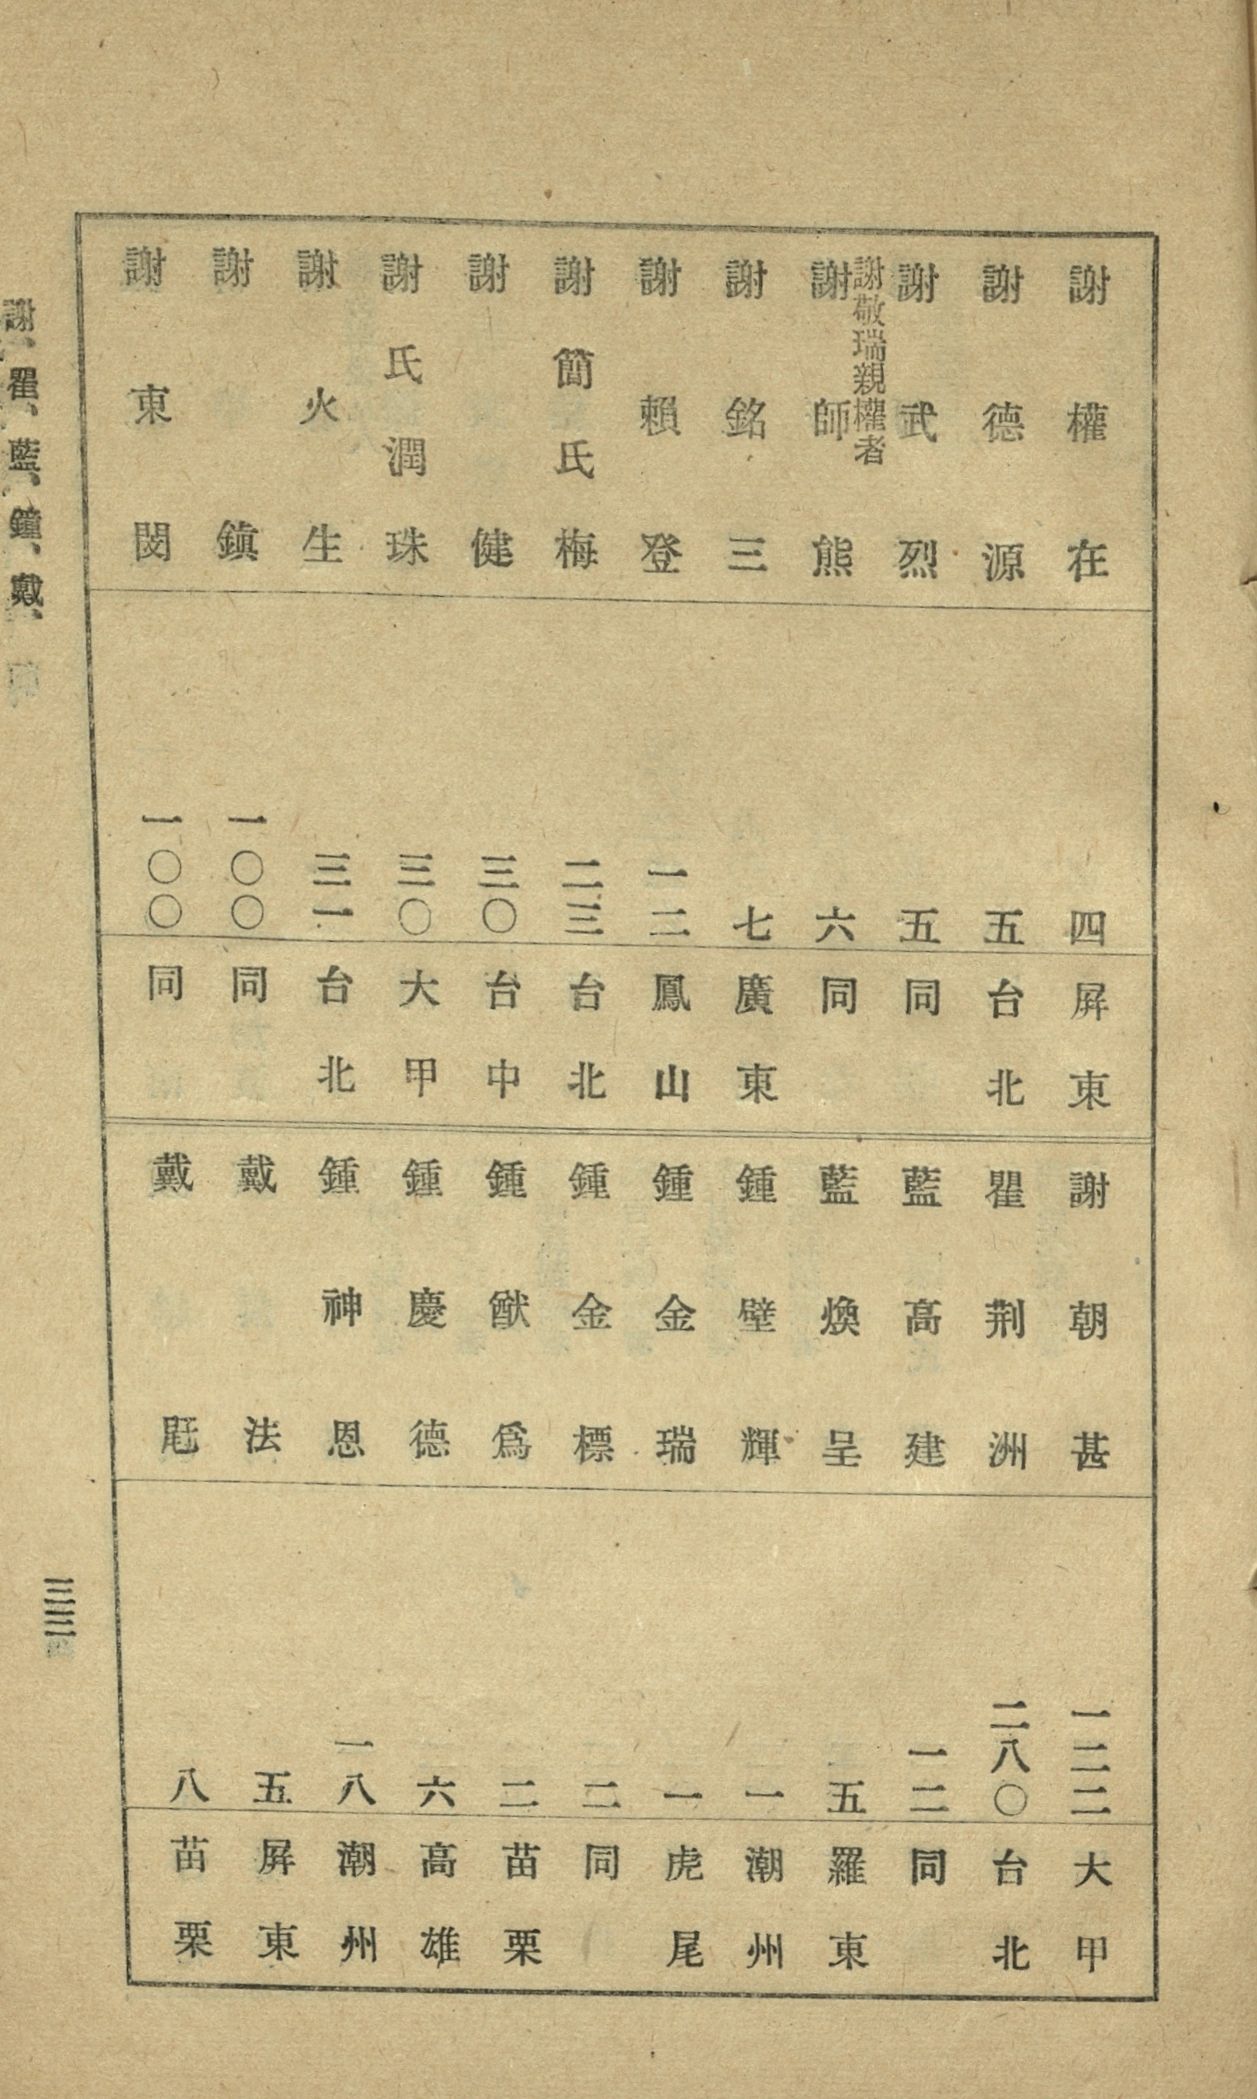 謝權在 四 屏東
謝德源 五 台北
謝武烈 五 同
謝敬瑞親權者
謝師熊 六 同
謝銘三 七 廣東
謝賴登 一二 鳳山
謝簡氏梅 二三 台北
謝健 三〇 台中
謝氏潤珠 三〇 大甲
謝火生 三一 台北
謝鎮 一〇〇 同
謝東閔 一〇〇 同
謝朝甚 一二二 大甲
瞿荆洲 二八〇 台北
藍高建 一二 同
藍煥呈 五 羅東
鍾壁輝 一 潮州
鍾金瑞 一 虎尾
鍾金標 二 同
鍾猷爲 二 苗栗
鍾慶德 六 高雄
鍾神恩 一八 潮州
戴法 五 屏東
戴 八 苗栗
謝、瞿、藍、鐘、戴、
三三